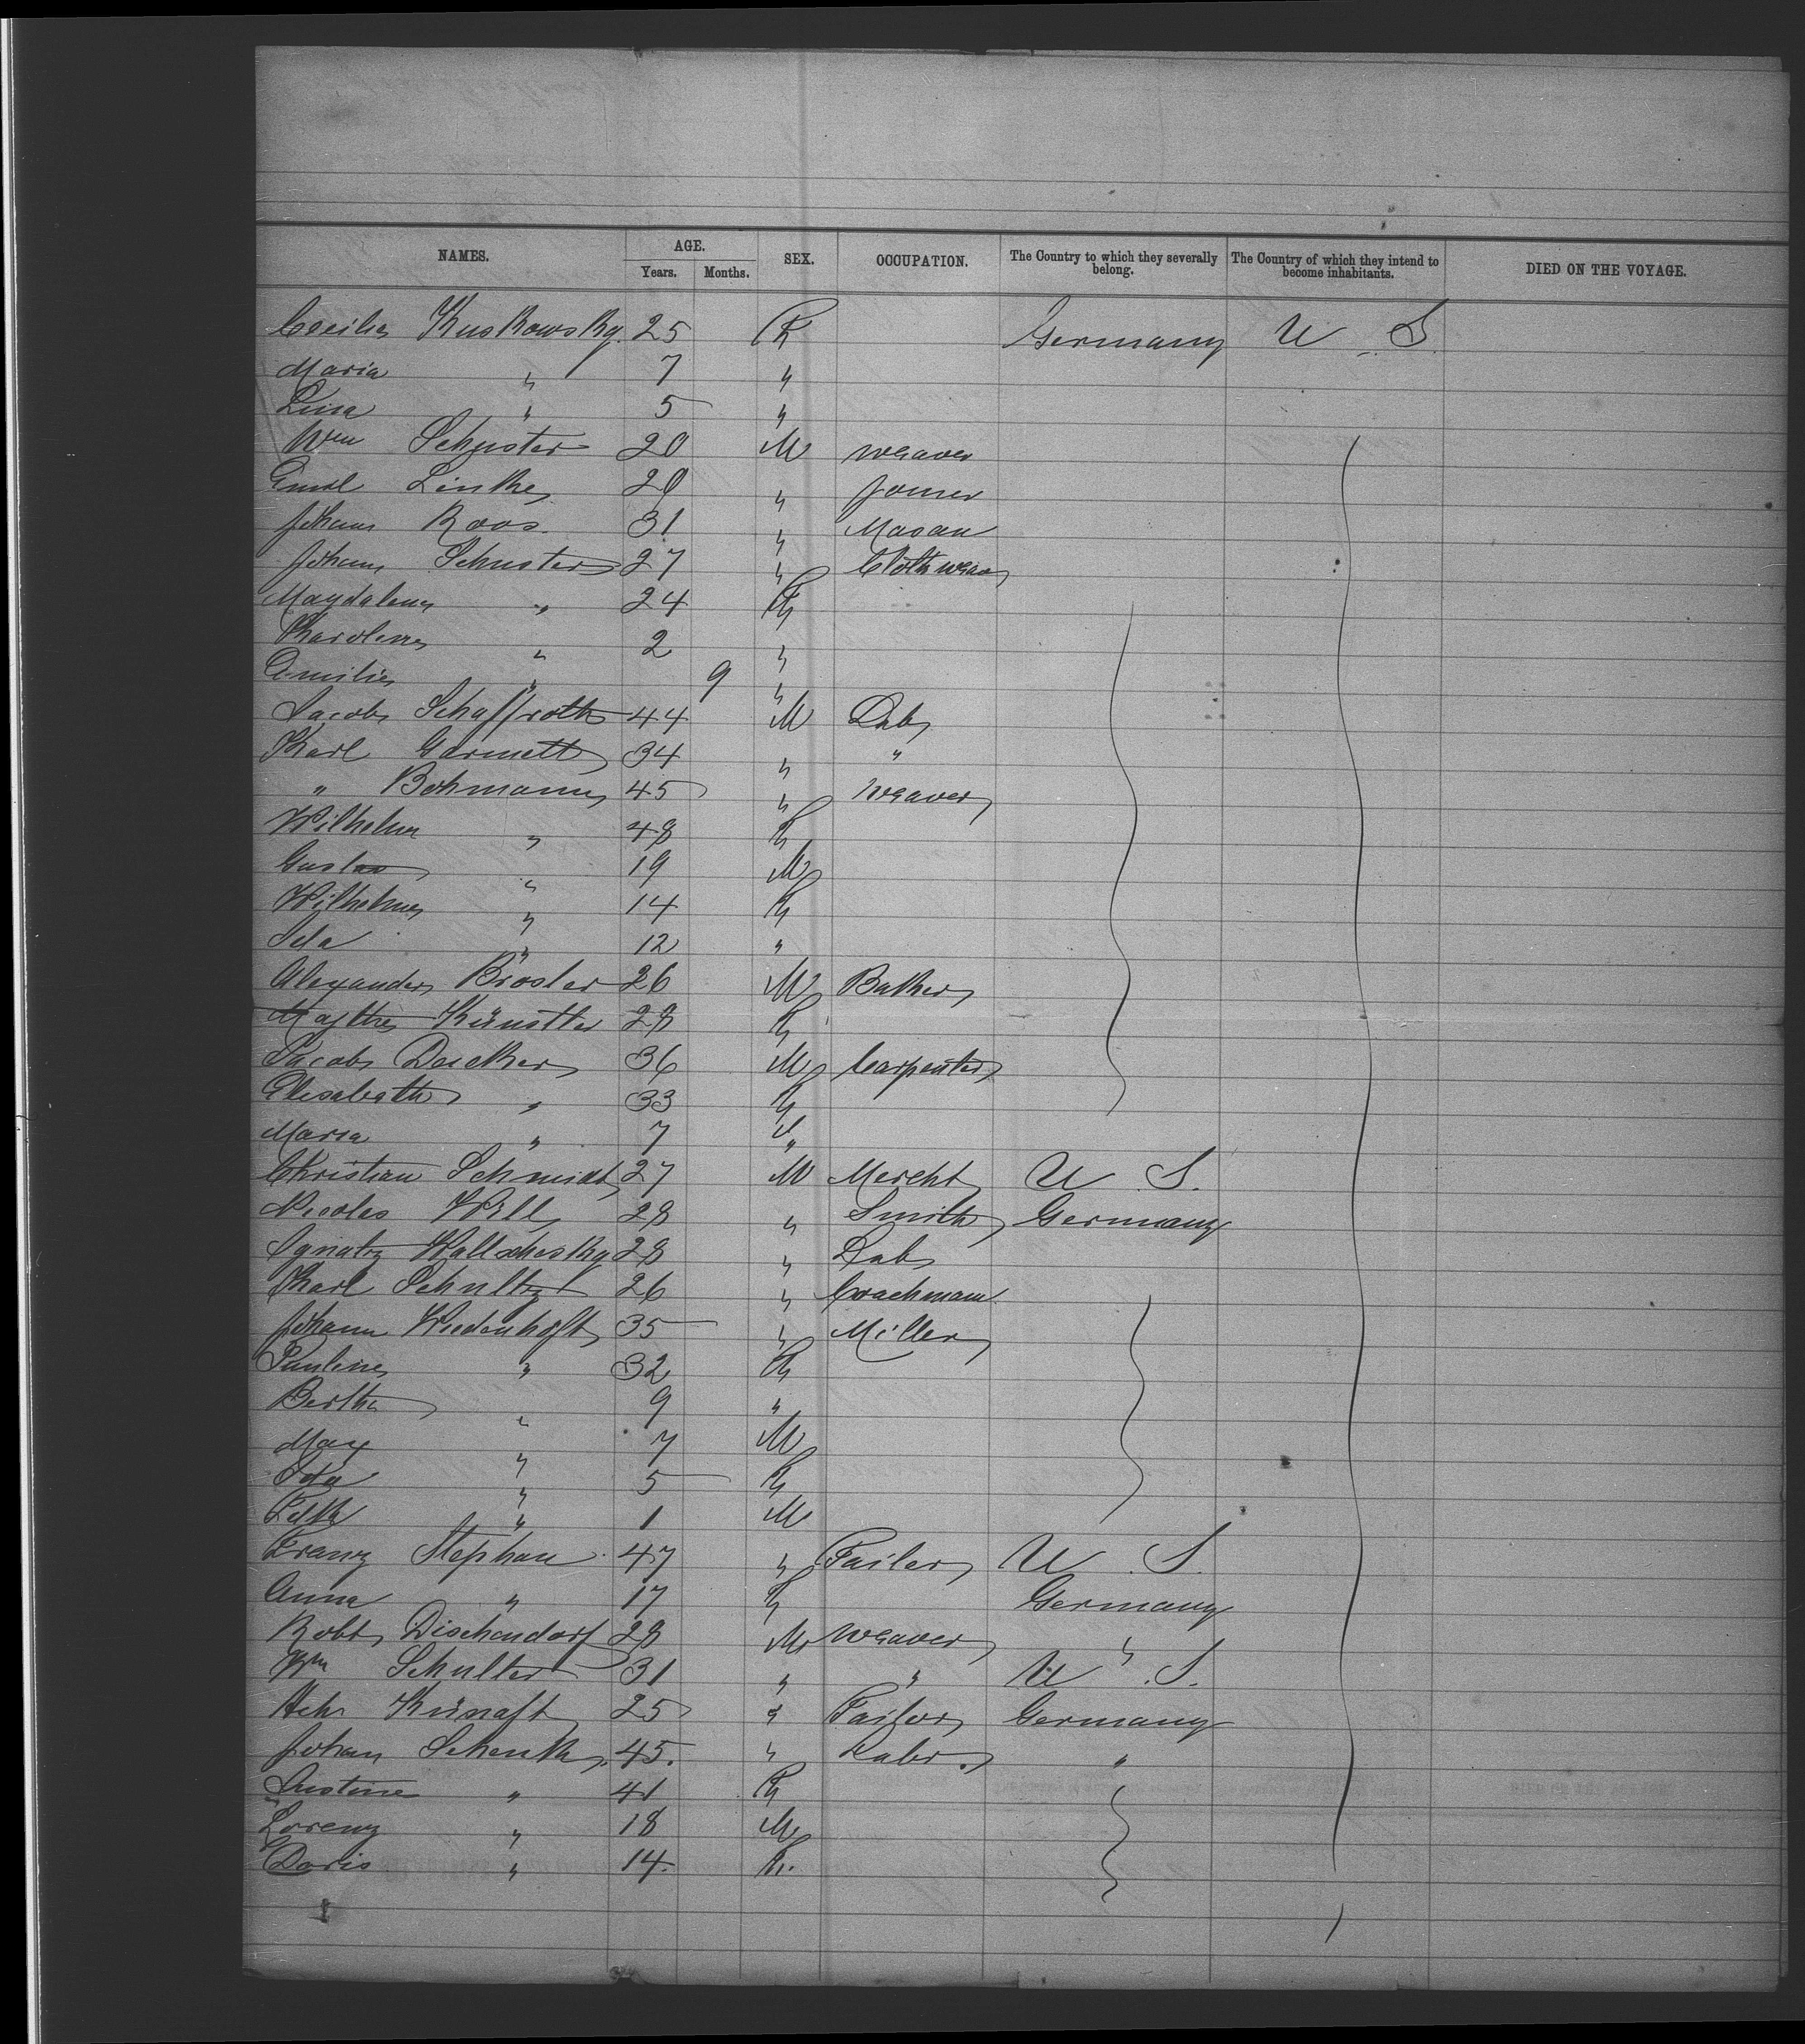 NAMES. AGE. SEX. OCCUPATION. The Country to which they severally belong. The Country of which they intend to become inhabitants. DIED ON THE VOYAGE.
Years. Months.
Cecilia Kuskowsky 25 F Germany U. S.
Maria " 7 "
Lina " 5 "
Wm Schuster 20 M weaver
Emil Linke 20 " Joiner
Johann Roos 31 " Mason
Johann Schuster 27 " Cloth weav
Magdalena " 24 F
Karoline " 2 "
Emilie " 9 "
Jacob Schaffroth 44 M Lab
Karl 34 " "
" Bohmann 45 " Weaver
Wilhelm " 48 F
Gustav " 19 M
Wilhelmine " 14 F
Ida " 12 "
Alexander 26 M Baker
Künstler 28 F
Jacob Decker 36 M Carpenter
Elisabeth " 33 F
Maria " 7 "
Christian Schmidt 27 M Mercht U. S.
Nicolas Will 28 " Smith Germany
Ignatz 28 " Lab
Karl Schultz 26 " Coachman
Johann Wiedenhöft 35 " Miller
Pauline " 32 F
Bertha " 9 "
Max " 7 M
Ida " 5 F
" 1 M
Franz Stephan 47 " Tailor U. S.
Anna " 17 F Germany
Robt Dischendorf 28 M weaver "
Wm Schulter 31 " " U. S.
Hch 25 " Tailor Germany
Johan Schenk 45. " Labr. "
Justine " 41 F
Lorenz " 18 M
Doris " 14. F.